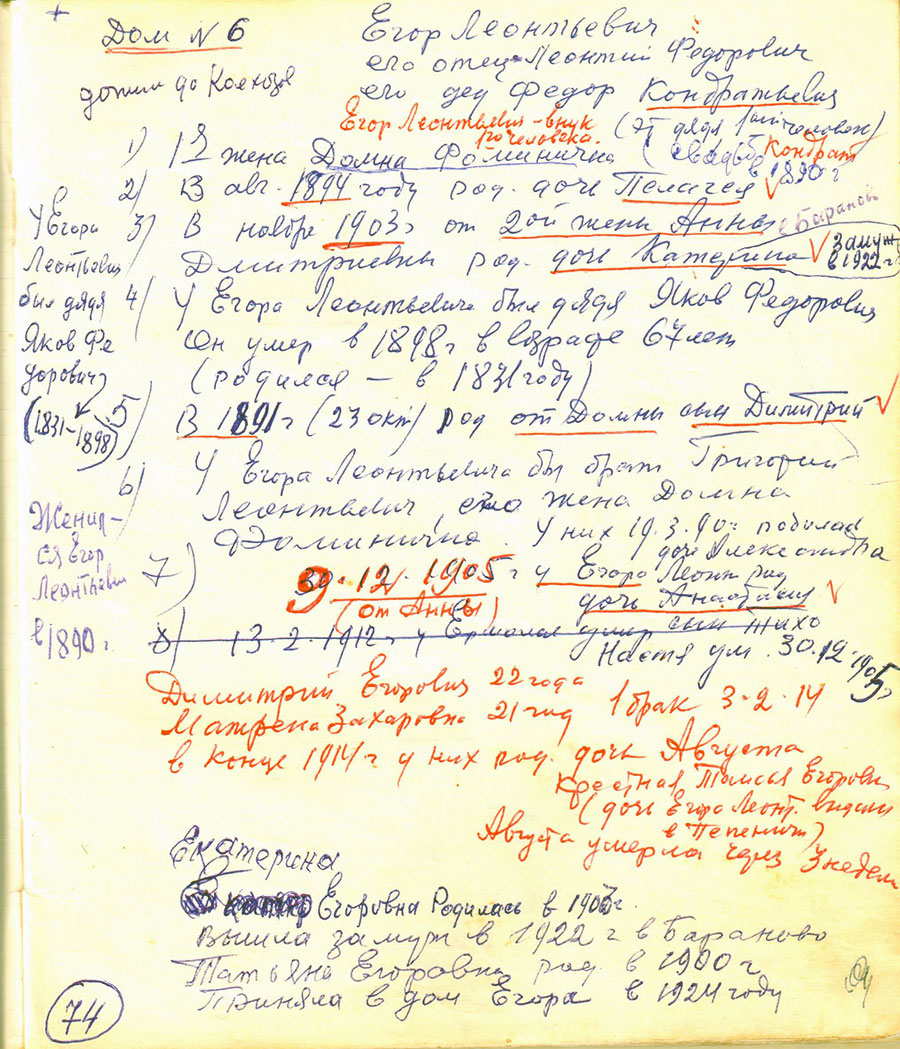 Дом № 6
Егор Леонтьевич
его отец Леонтий Федорович
его дед Федор Кондратьевич
дожили до
Егор Леонтьевич - внук
1го человека.
1) 1я жена Домна Фоминична (свадьба
в 1890 г
Кондрат
2) В авг. 1894 году род. дочь Пелагея
3) В ноябре 1903 г от 2ой жены Анны
Дмитриевны род. дочь Катерина
замуж
в 1922 г
У Егора
Леонтьевича
был дядя
Яков Фе
дорович
(1831-1898)
4) У Егора Леонтьевича был дядя Яков Федорович
Он умер в 1898 г в возрасте 67 лет
(родился - в 1831 году)
5) В 1891 г (23 окт) род от Домны сын Димитрий
6) У Егора Леонтьевича был брат Григорий
Леонтьевич, его жена Домна
Фоминична. У них 19.3.90 г. родилась
дочь Александра
Женил-
ся Егор
Леонтьевич
в 1890 г.
7) 30.12.1905 г у Егора Леонт род
(от Анны) дочь Анастасия
8) 13.2.1912 г у умер сын
Настя ум. 30.12.1905 г
Димитрий Егорович 22 года
Матрена Захаровна 21 год 1 брак 3.2.14
в конце 1914 г у них род. дочь Августа
Крестная Таисья Егоровна
(дочь Егора Леонт. выдали
в
Августа умерла через 3 недели
Екатерина
Егоровна Родилась в 1903 г.
Вышла замуж в 1922 г в Бараново
Татьяна Егоровна род. в 1900 г
Приняла в дом Егора в 1924 году
74